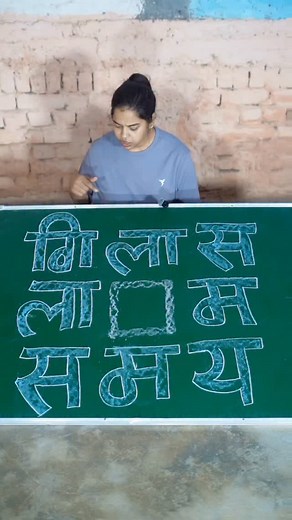 गि ला स
ला म
स म य